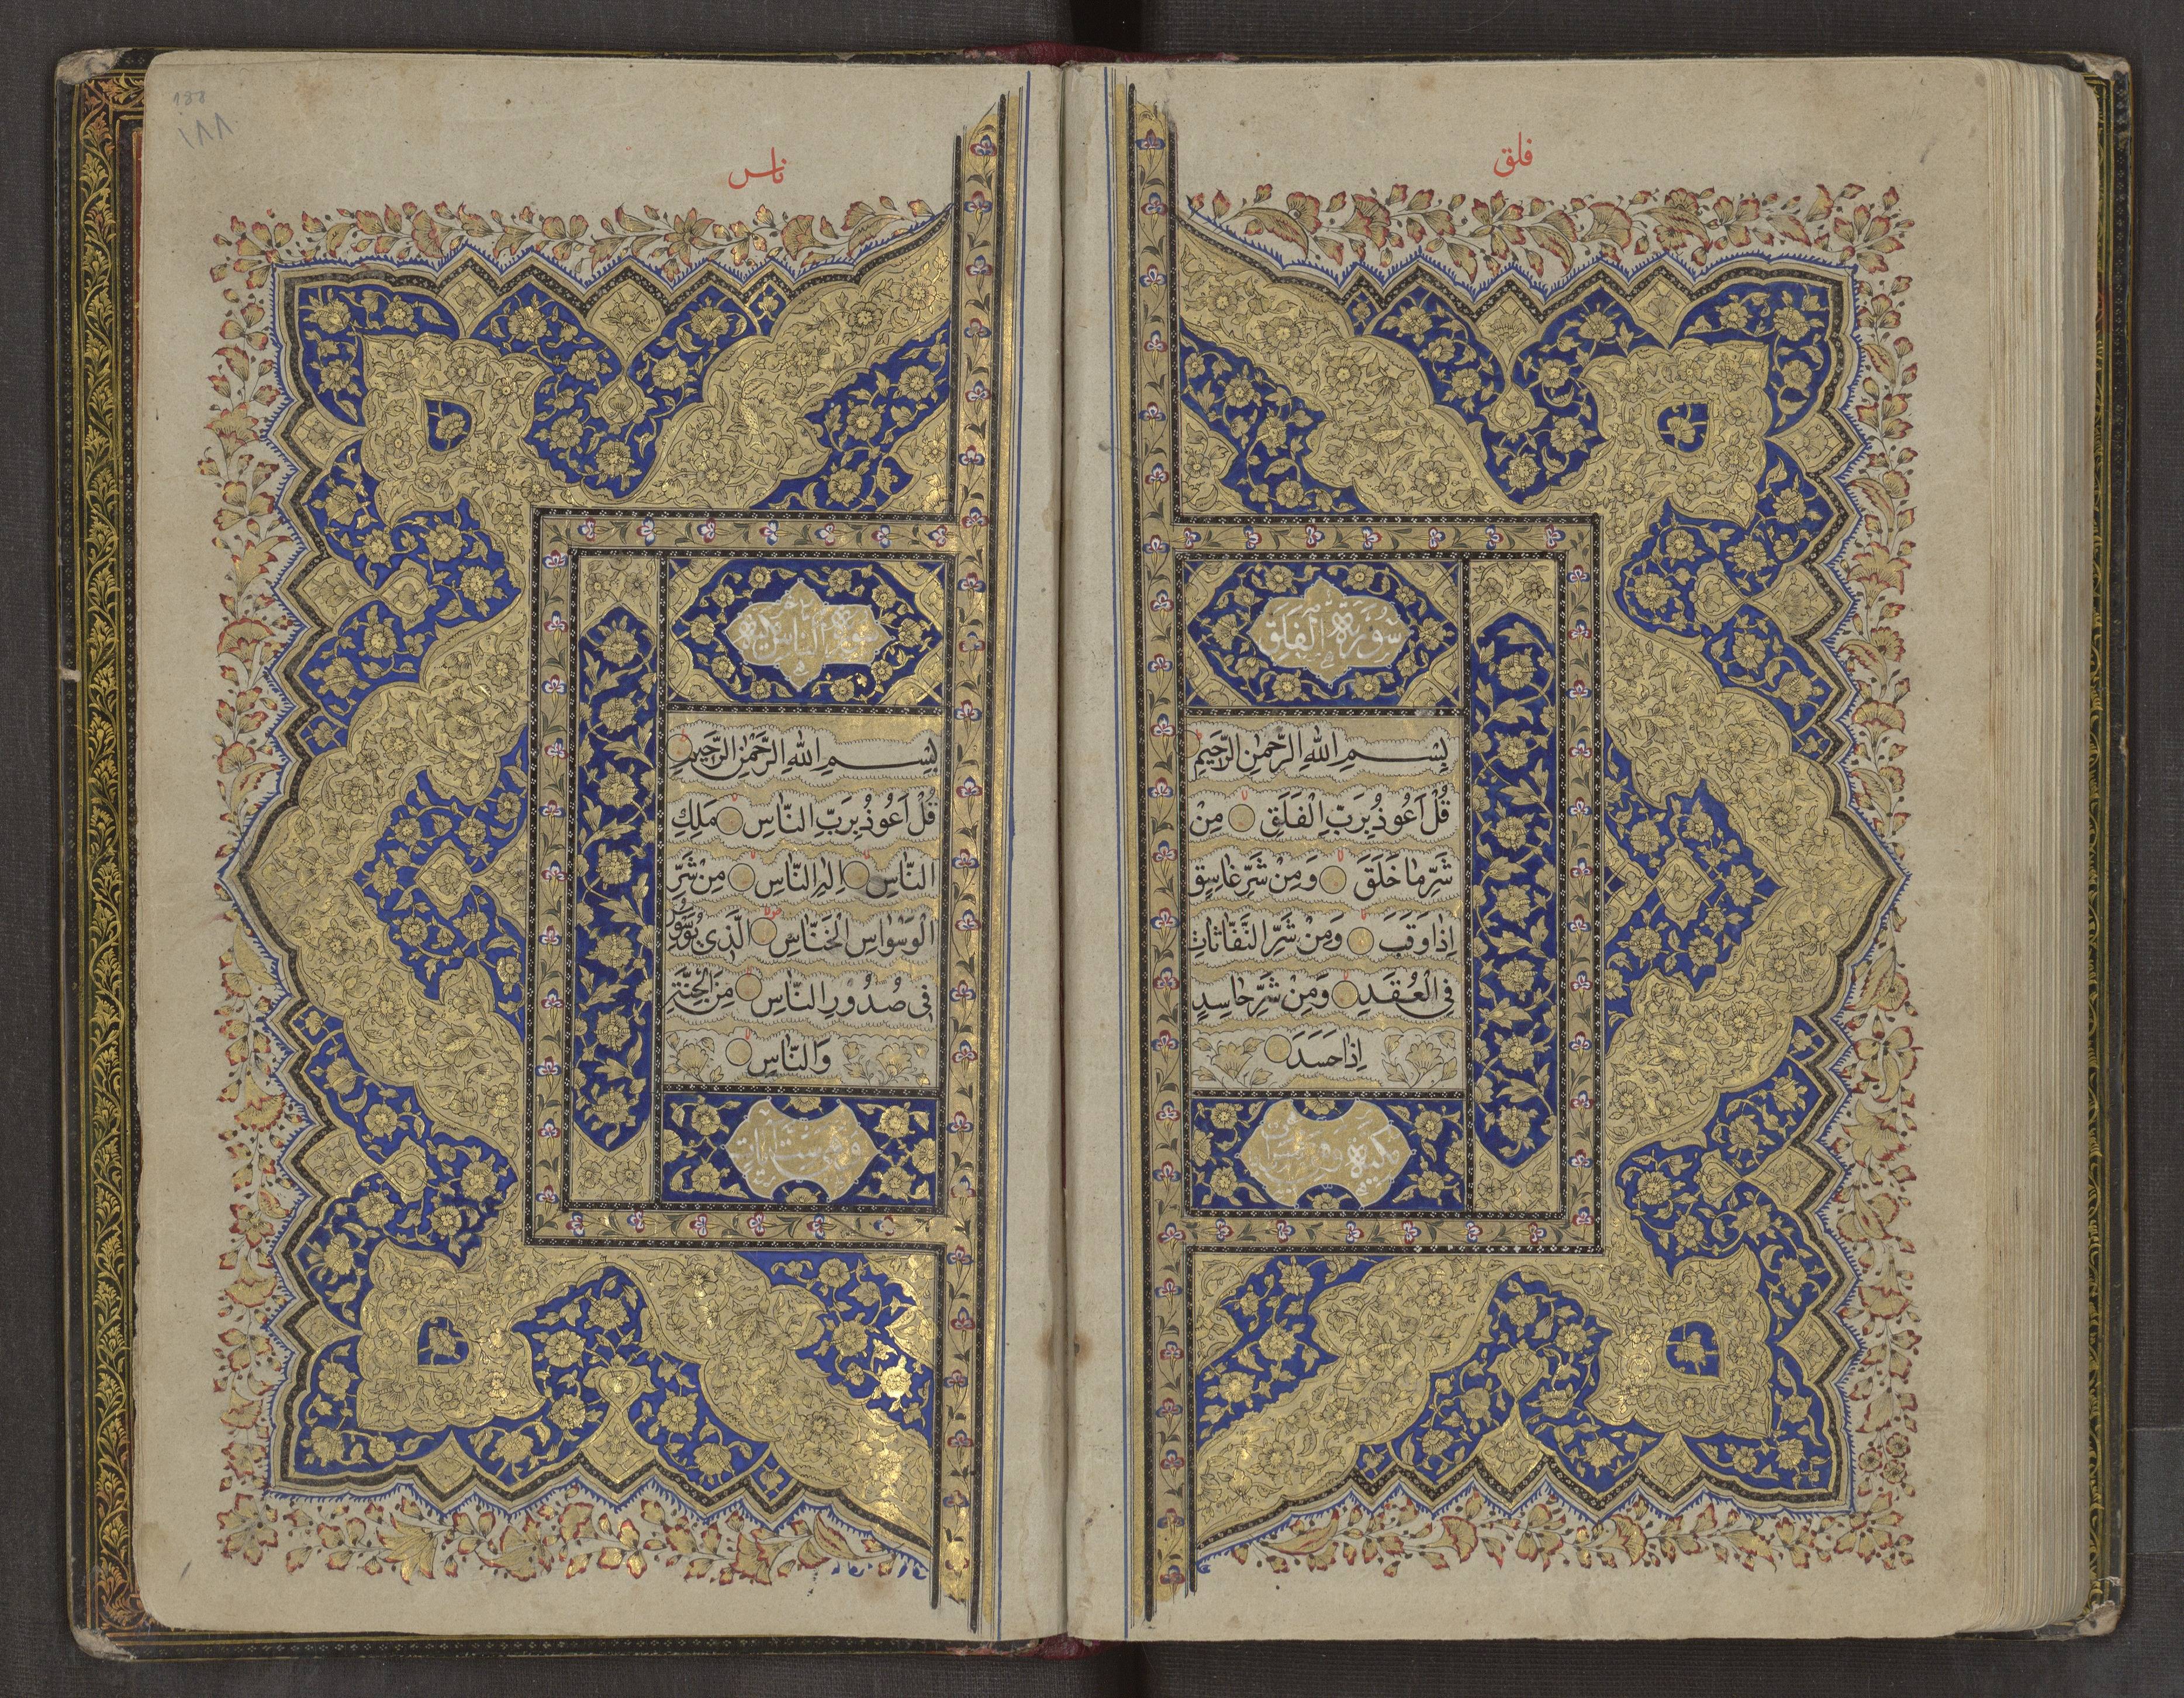 فلق
سُورَةُ الْفَلَقِ
بِسْمِ اللهِ الرَّحْمٰنِ الرَّحِيمِ
قُلْ اَعُوذُ بِرَبِّ الْفَلَقِ مِنْ
شَرِّ مَا خَلَقَ وَمِنْ شَرِّ غَاسِقٍ
اِذَا وَقَبَ وَمِنْ شَرِّ النَّفَّاثَاتِ
فِي الْعُقَدِ وَمِنْ شَرِّ حَاسِدٍ
اِذَا حَسَدَ
مكية وهي خمس
ناس
188
١٨٨
سورة الناس
بِسْمِ اللهِ الرَّحْمٰنِ الرَّحِيمِ
قُلْ اَعُوذُ بِرَبِّ النَّاسِ مَلِكِ
النَّاسِ اِلٰهِ النَّاسِ مِنْ شَرِّ
الْوَسْوَاسِ الْخَنَّاسِ الَّذِي يُوَسْوِسُ
فِي صُدُورِ النَّاسِ مِنَ الْجِنَّةِ
وَالنَّاسِ
وهي ست ايات